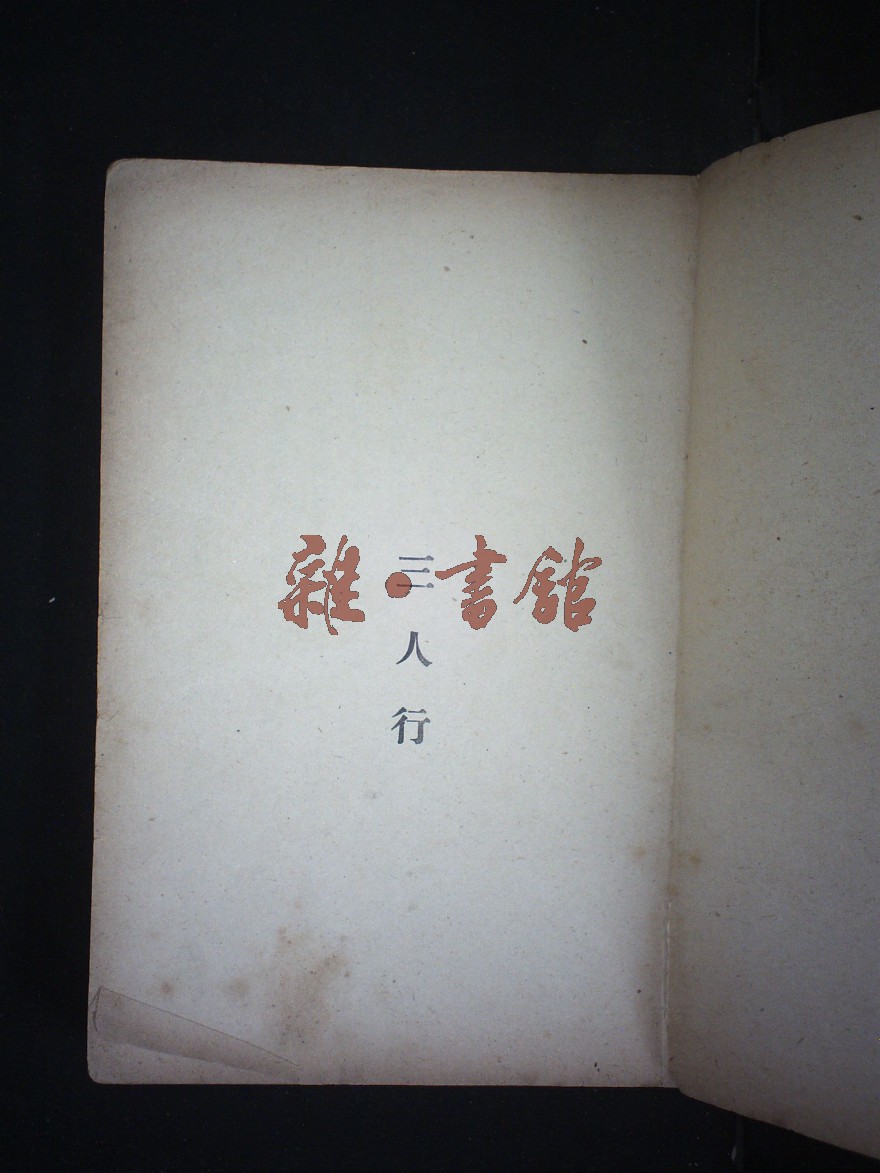 雜·書館
三人行